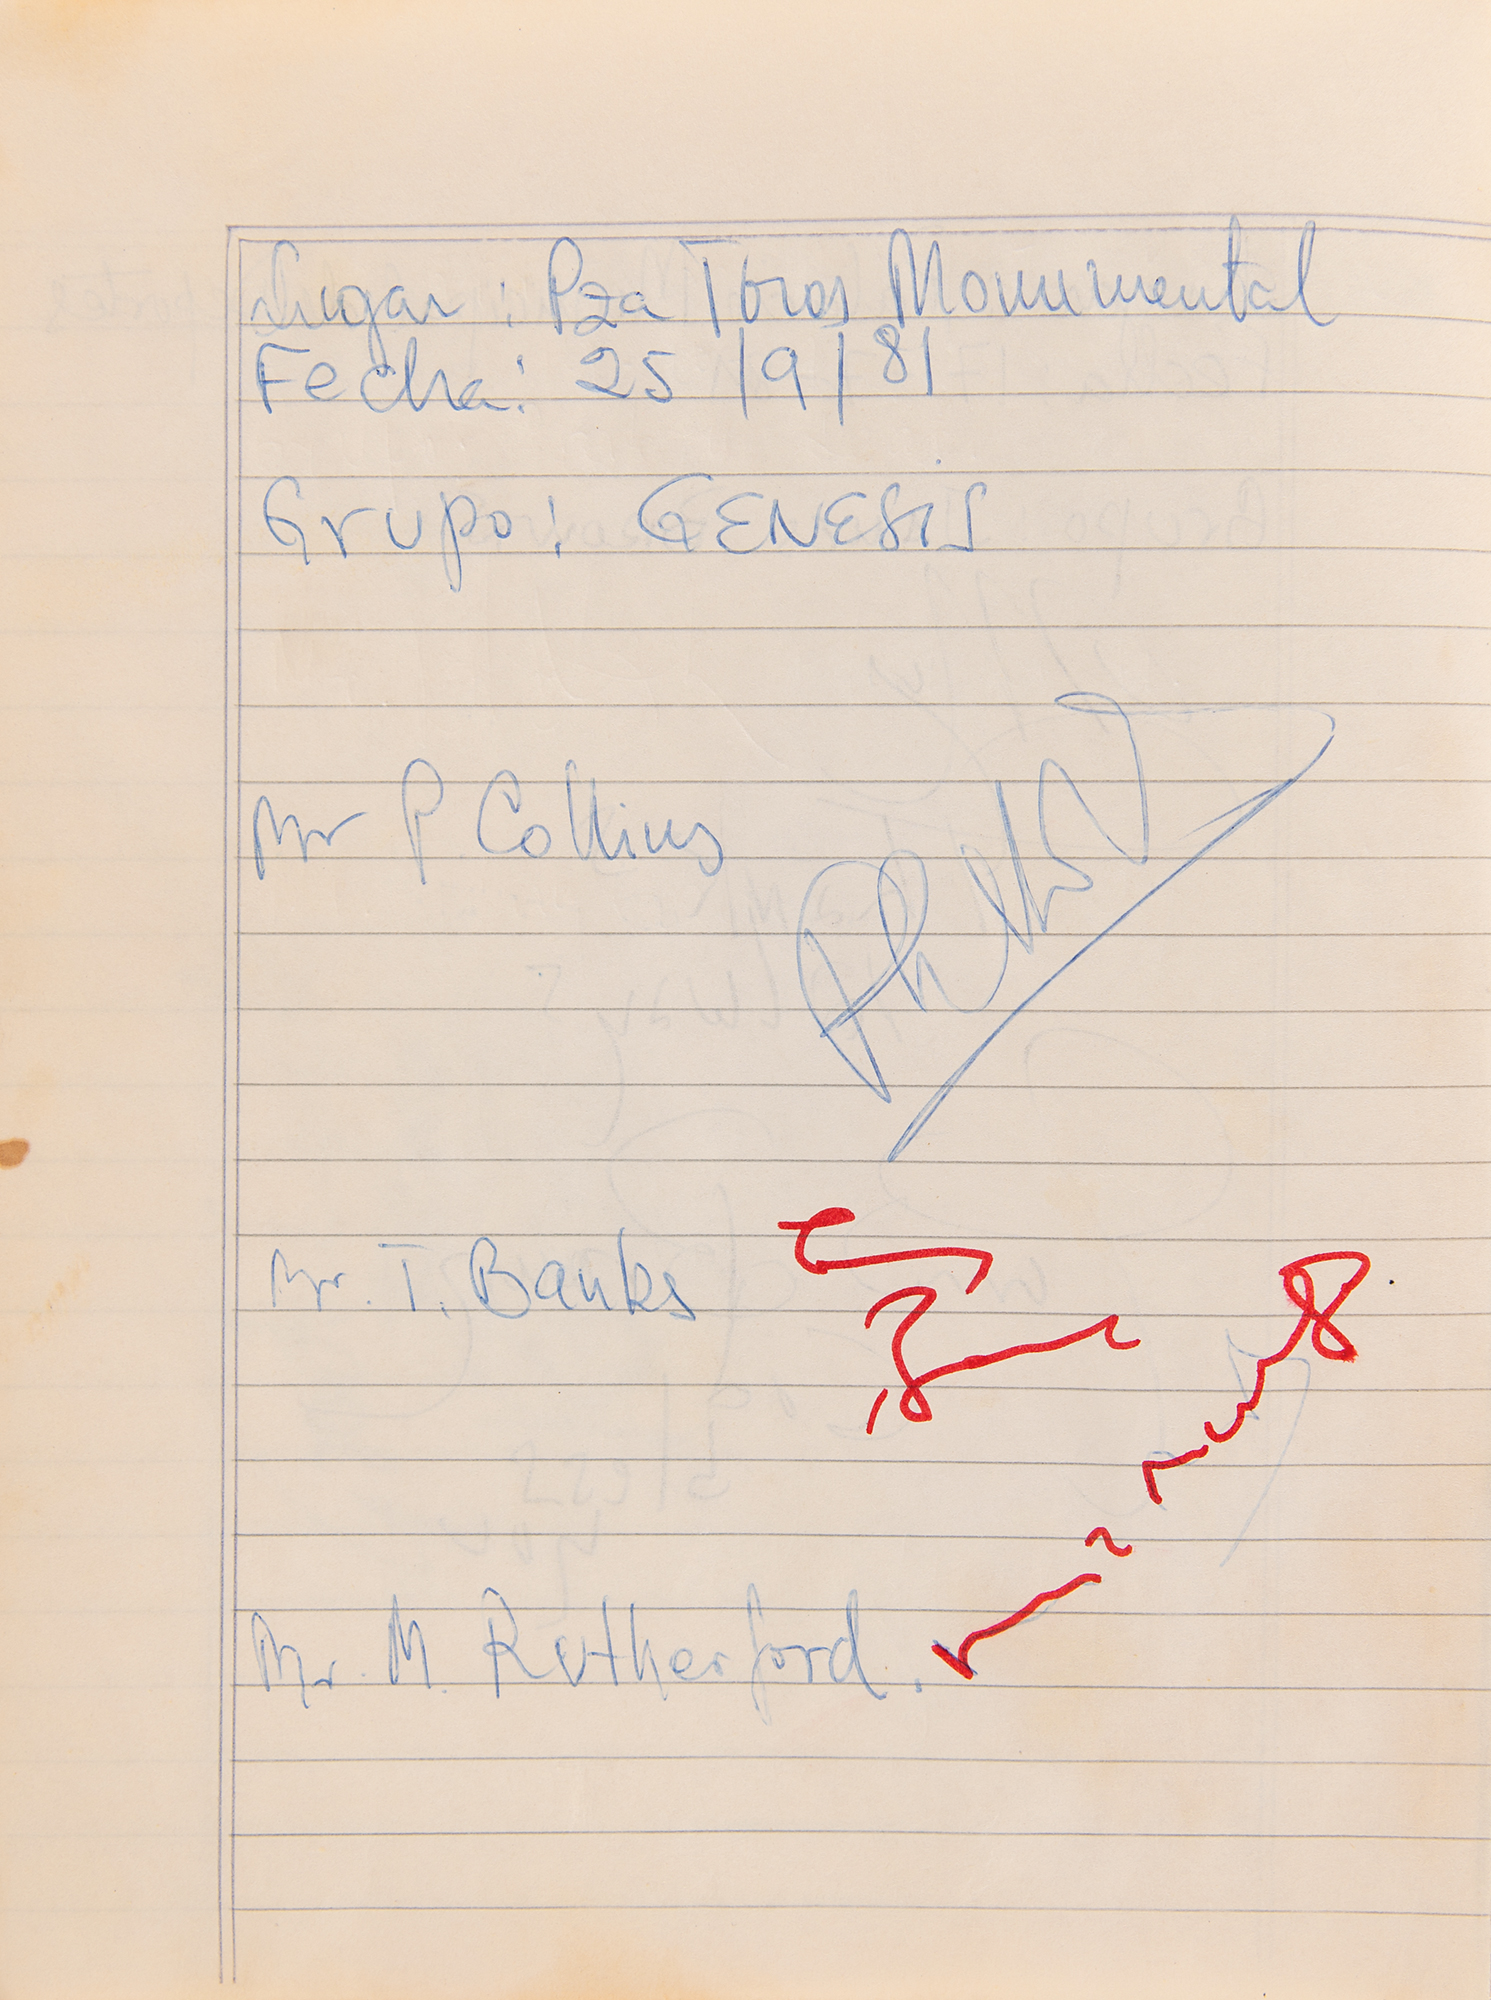 Lugar: Pza Toros Monumental
Fecha: 25/9/81
Grupo: GENESIS
Mr P Collins
Mr. T. Banks
Mr. M. Rutherford.